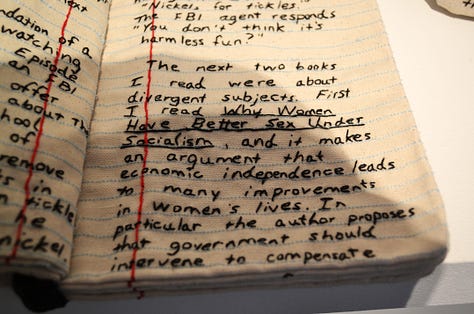 ndation of a
watching
Episode
an FBI
offer
about The
hool
of
remove
ts in
n tickle
he
nickel.
"Nickels for tickles."
The FBI agent responds
"You don't think it's
harmless fun?"
The next two books
I read were about
divergent subjects. First
I read Why Women
Have Better Sex Under
Socialism, and it makes
an argument that
economic independence leads
to many improvements
in women's lives. In
particular the author proposes
that government should
intervene to compensate